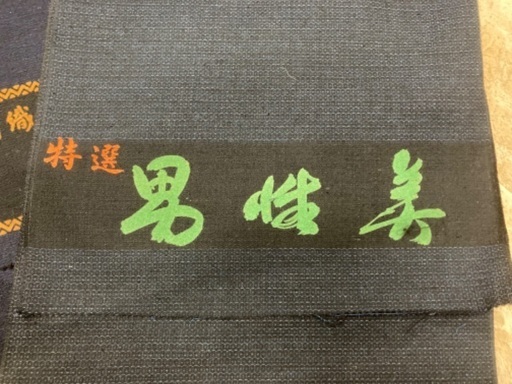 特選 男性美
織